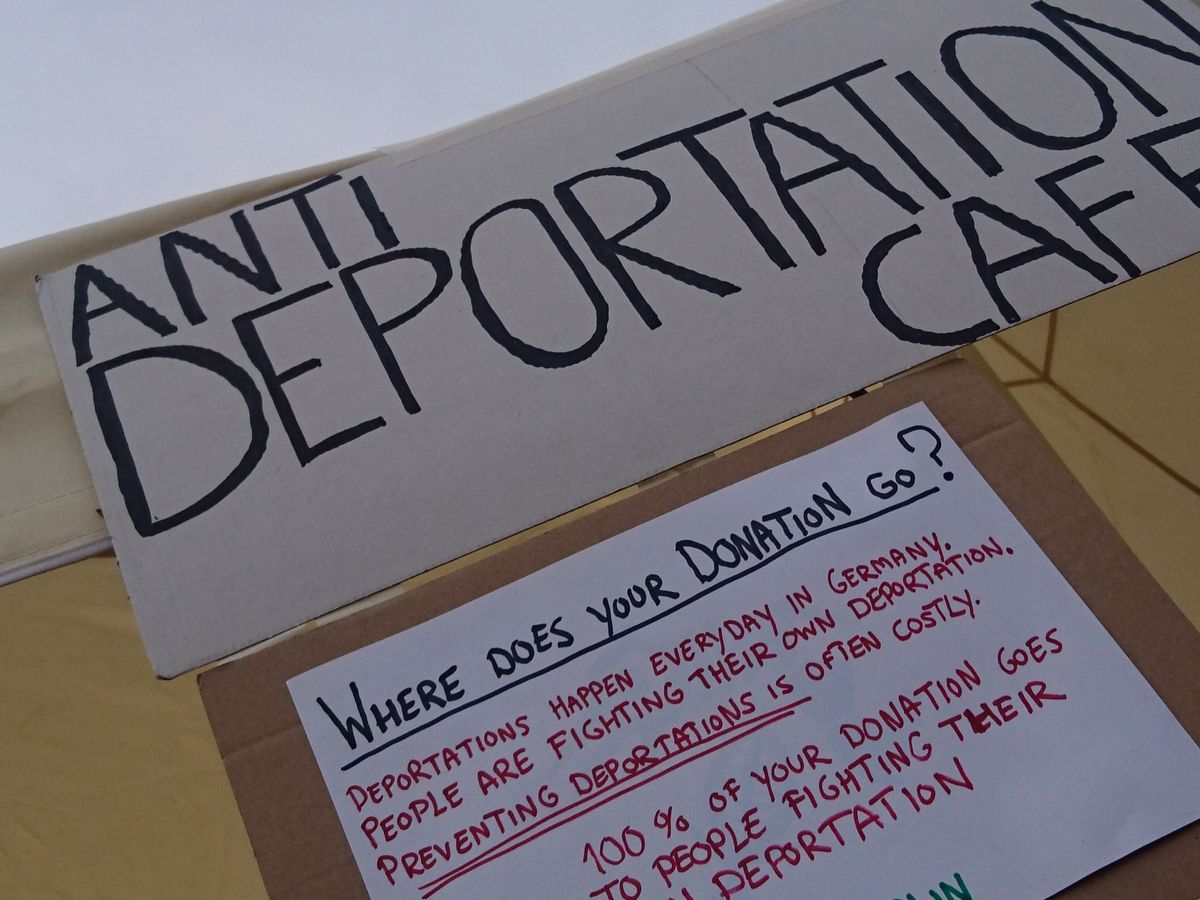 ANTI
DEPORTATION
CAFE
WHERE DOES YOUR DONATION GO?
DEPORTATIONS HAPPEN EVERYDAY IN GERMANY.
PEOPLE ARE FIGHTING THEIR OWN DEPORTATION.
PREVENTING DEPORTATIONS IS OFTEN COSTLY.
100 % OF YOUR DONATION GOES
TO PEOPLE FIGHTING THEIR
DEPORTATION